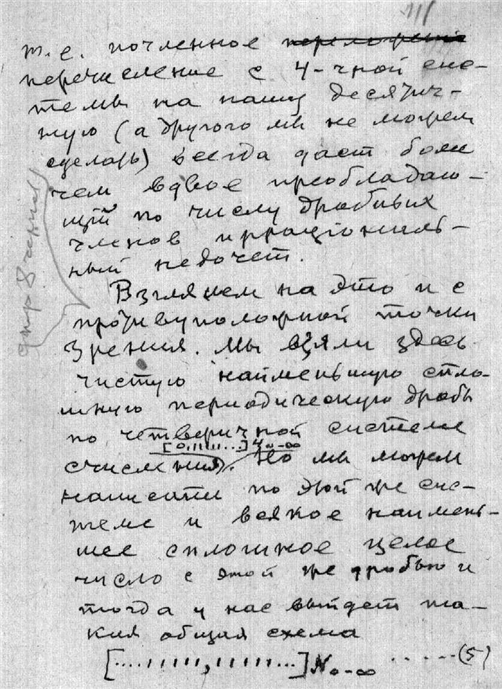 111
т.е. почленное
перечисление с 4-чной сис-
темы на нашу десятич-
ную (а другого мы не можем
сделать) всегда даст более
чем вдвое преобладаю-
щий по числу дробных
членов иррациональ-
ный недочет.
Взглянем на это и с
противуположной точки
зрения. Мы взяли здесь
чистую наименьшую спло-
шную периодическую дробь
по четверичной системе
[0,11111...]4₀₋∞
счисления. Но мы можем
написать по этой же сис-
теме и всякое наимень-
шее сплошное целое
число с этой же дробью и
тогда у нас выйдет та-
кая общая схема
[...11111,11111...]N₀₋∞ ......(5)